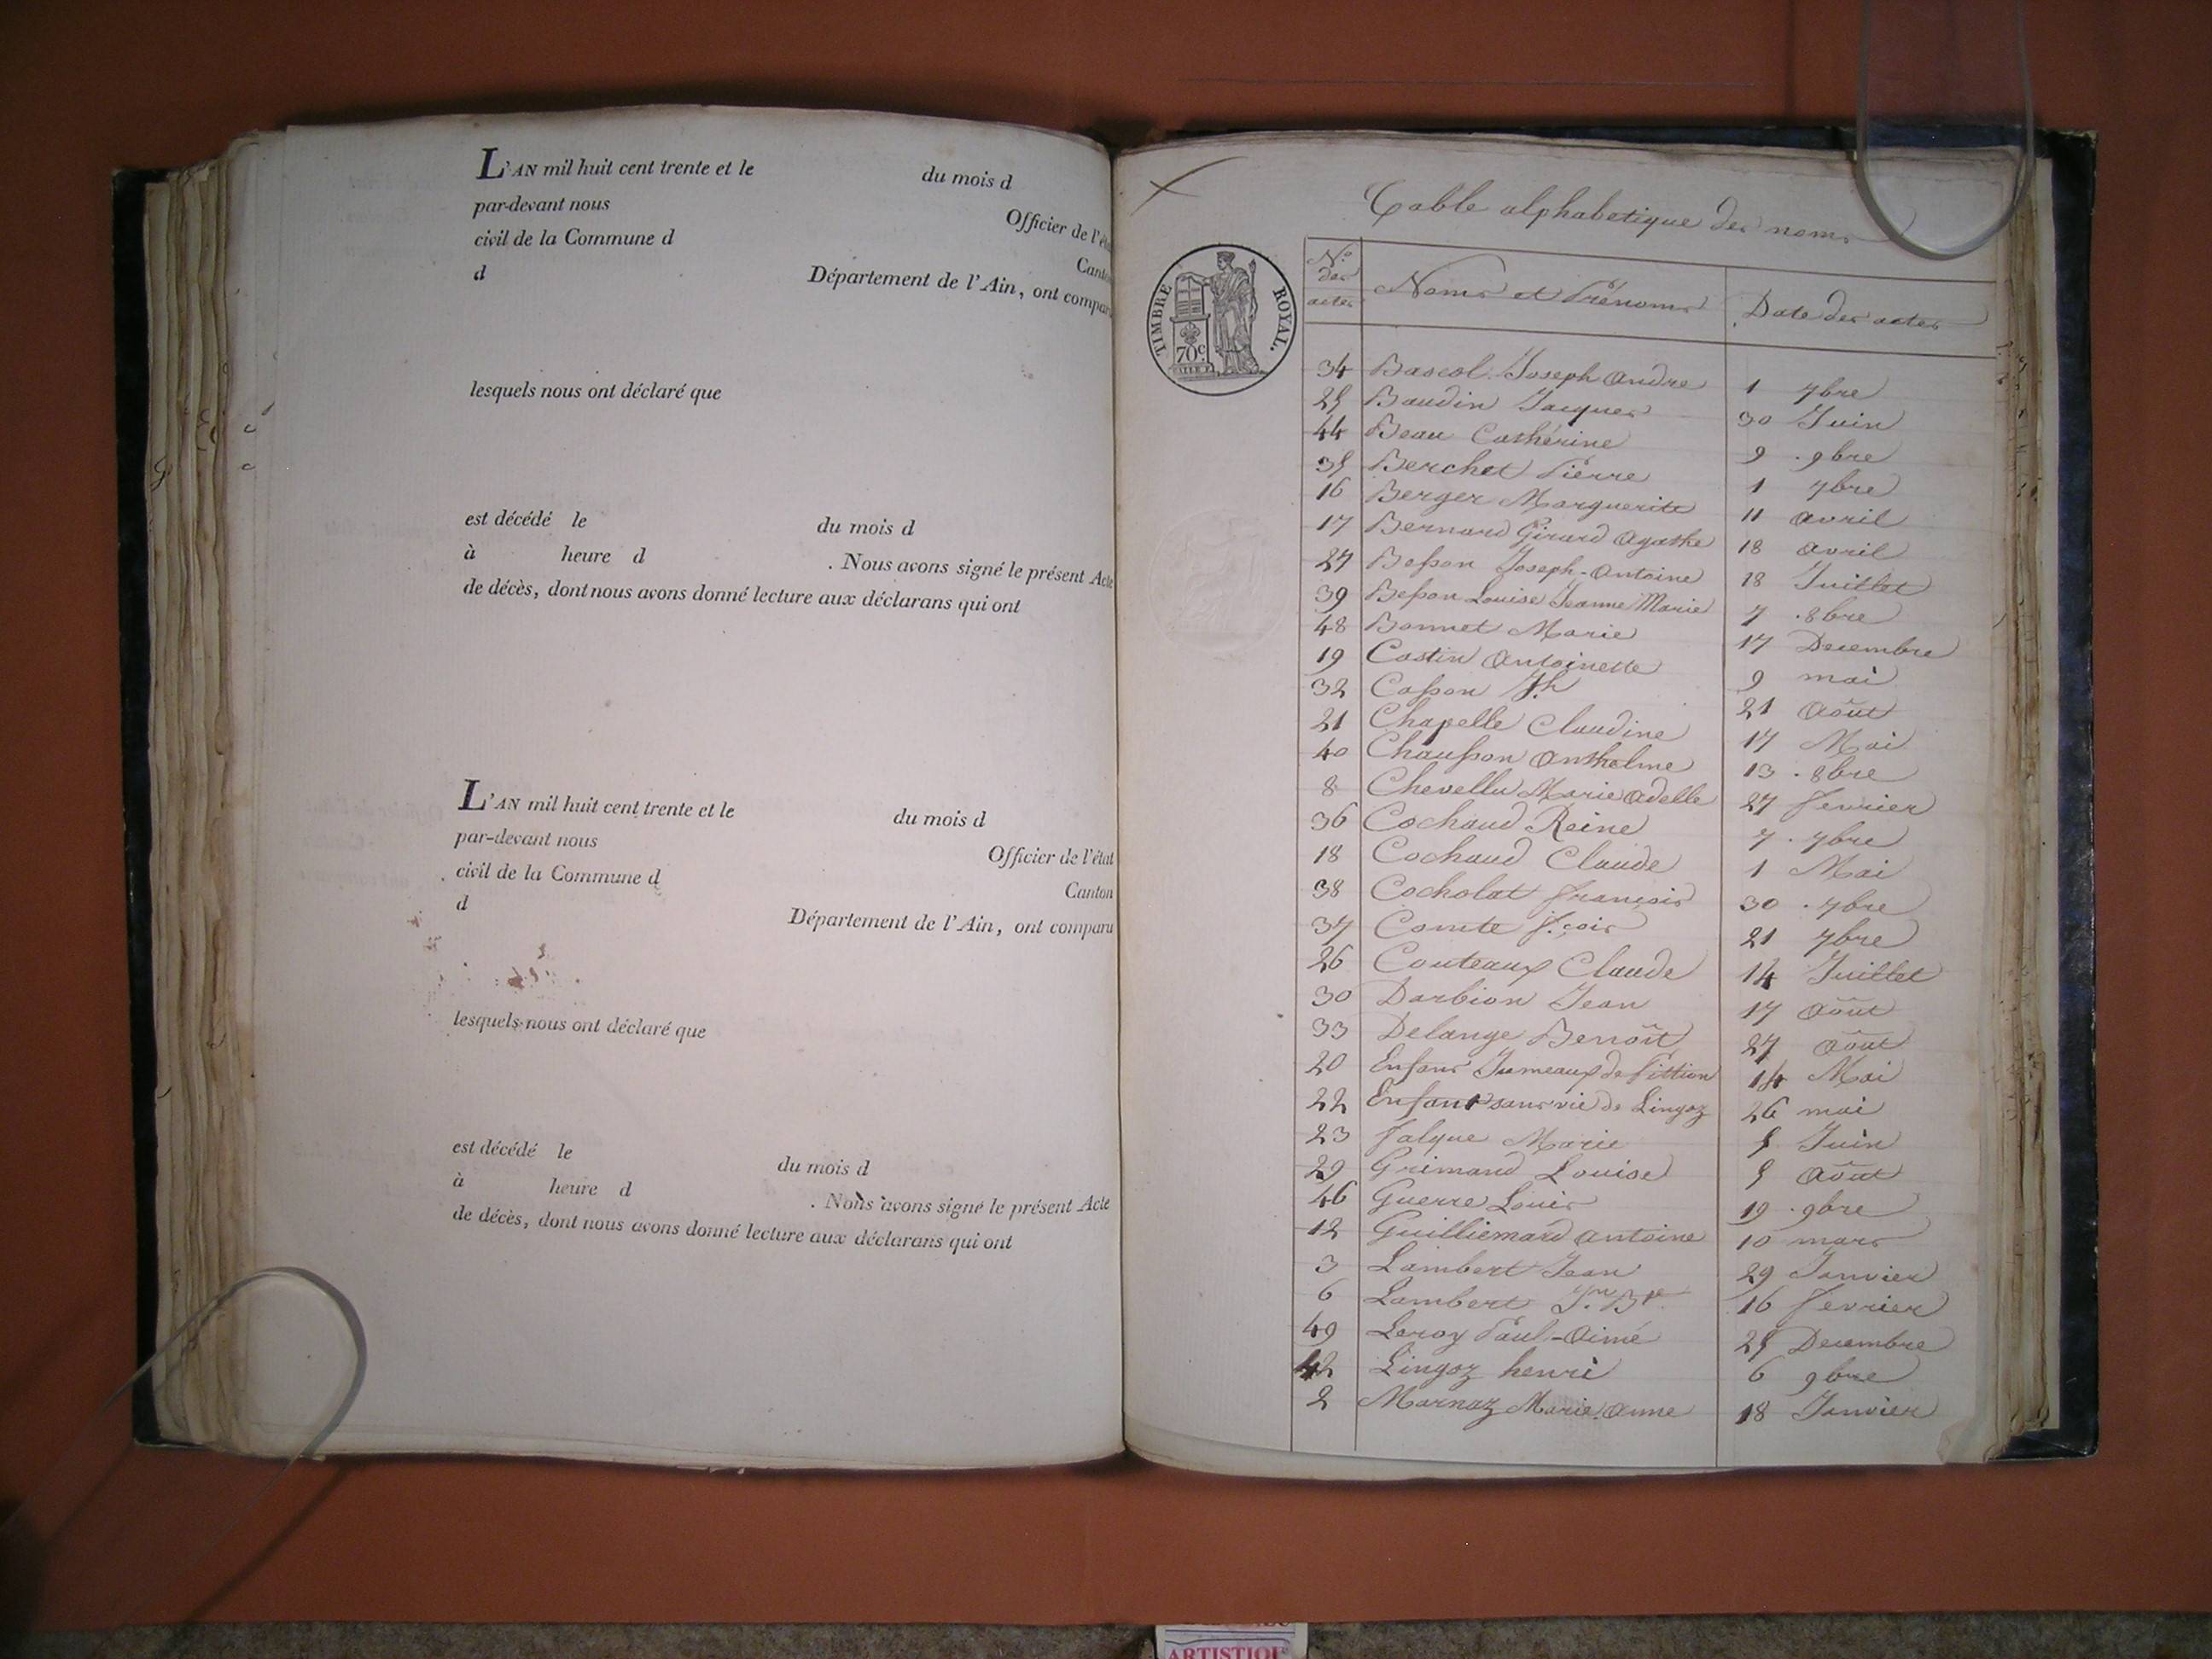 L'AN mil huit cent trente et le du mois d
par-devant nous Officier de l'état
civil de la Commune d Canton
d Département de l'Ain, ont comparu
lesquels nous ont déclaré que
est décédé le du mois d
à heure d . Nous avons signé le présent Acte
de décès, dont nous avons donné lecture aux déclarans qui ont
L'AN mil huit cent trente et le du mois d
par-devant nous Officier de l'état
civil de la Commune d Canton
d Département de l'Ain, ont comparu
lesquels nous ont déclaré que
est décédé le du mois d
à heure d . Nous avons signé le présent Acte
de décès, dont nous avons donné lecture aux déclarans qui ont
Table alphabetique des noms
TIMBRE ROYAL.
70c
N.o des actes Noms et Prénoms Date des actes
34 Bascol Joseph Andre 1 7bre
25 Baudin Jacques 30 Juin
44 Beau Cathérine 9 .9bre
35 Berchet Pierre 1 7bre
16 Berger Marguerite 11 avril
17 Bernard Girard Agathe 18 avril
27 Besson Joseph-Antoine 18 Juillet
39 Besson Louise Jeanne Marie 7 .8bre
48 Bonnet Marie 17 Decembre
19 Castin Antoinette 9 mai
32 Casson Jh 21 Août
21 Chapelle Claudine 17 Mai
40 Chausson Anthelme 13 .8bre
8 Chevellu Marie Adelle 27 fevrier
36 Cochaud Reine 7 .7bre
18 Cochaud Claude 1 Mai
38 Cocholat françois 30 .7bre
37 Comte f.çois 21 7bre
26 Couteaux Claude 14 Juillet
30 Darbion Jean 17 Août
33 Delange Benoît 27 Août
20 Enfans Jumeaux de Pittion 14 Mai
22 Enfant sans vie de Lingoz 26 mai
23 falque Marie 5 Juin
29 Grimand Louise 5 Août
46 Guerre Louis 19 .9bre
12 Guilliemard antoine 10 mars
3 Lambert Jean 29 Janvier
6 Lambert Jn Bte 16 fevrier
49 Leroy Paul-Aimé 25 Decembre
42 Lingoz henri 6 9bre
2 Marnaz Marie Anne 18 Janvier